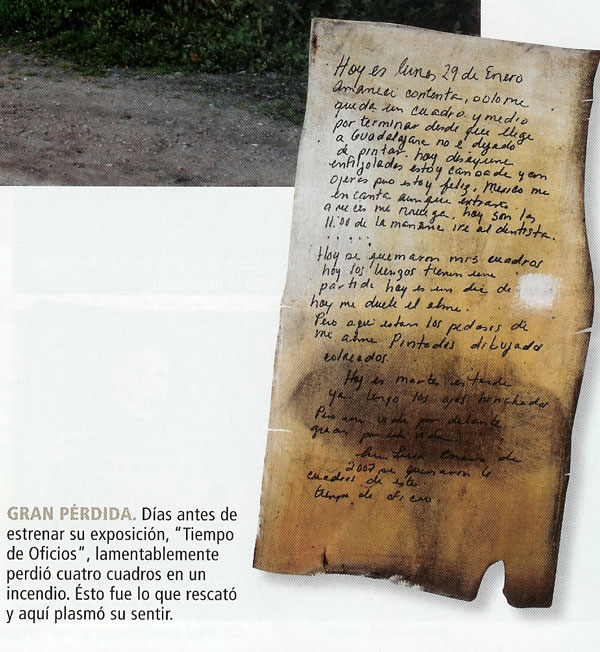 Hoy es lunes 29 de Enero
amaneci contenta, solo me
queda un cuadro y medio
por terminar desde que llege
a Guadalajare no e dejado
de pintar. hoy desayune
enfrijoladas estoy cansada y con
ojeras pero estoy feliz, Mexico me
encanta aunque extraño
a veces mi noruega. hoy son las
11:00 de la mañana ire al dentista.
. . . . .
Hoy se quemaron mis cuadros
hoy los lienzos tienen una
partida hoy es un dia de
hoy me duele el alma.
Pero aqui estan los pedasos de
mi alma Pintados dibujados
coloreados.
Hoy es martes es tarde
ya tengo los ojos hinchados
Pero una vida por delante
gracias por esta vida.
Enero de
2007 se quemaron 4
cuadros de este
tiempo de oficio.
GRAN PÉRDIDA. Días antes de
estrenar su exposición, "Tiempo
de Oficios", lamentablemente
perdió cuatro cuadros en un
incendio. Ésto fue lo que rescató
y aquí plasmó su sentir.